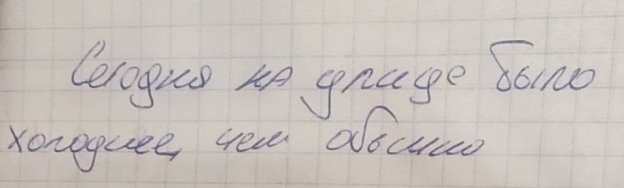 Сегодня на улице было
холоднее, чем обычно